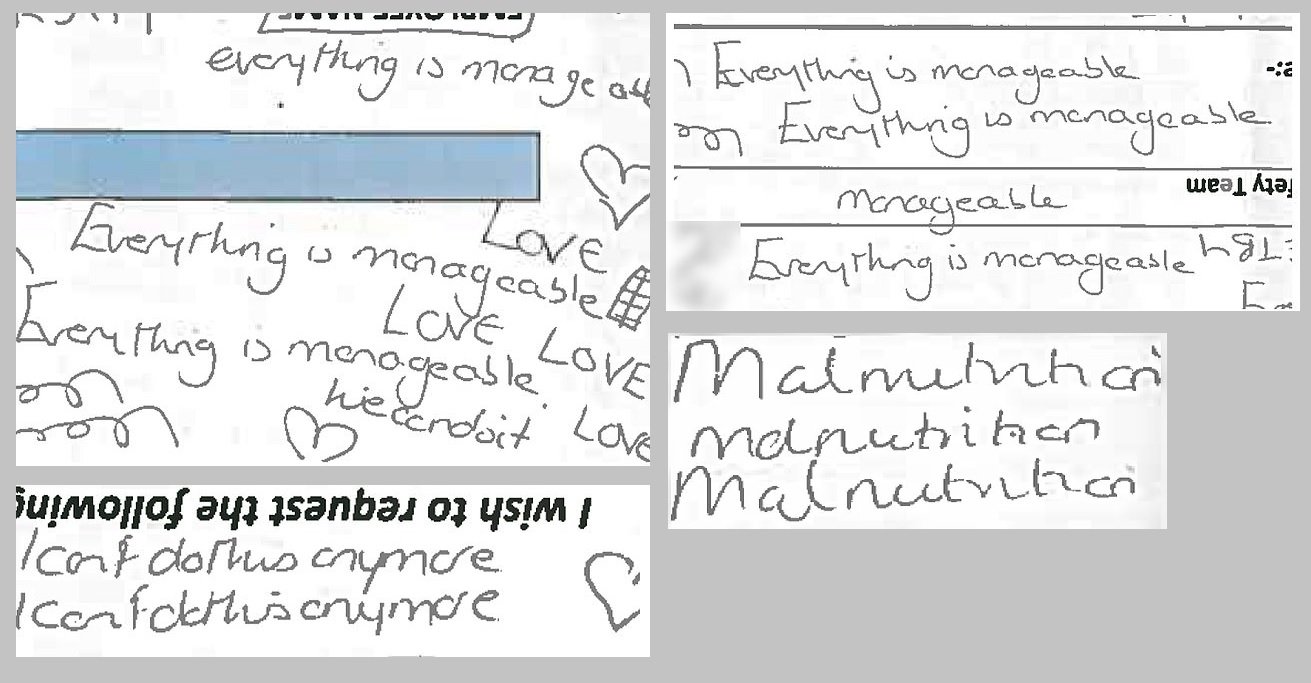 EMPLOYEE NAME
everything is manage
Love
Everything is manageable
Love
Everything is manageable
Love
we can do it
Love
I wish to request the following
I can't do this anymore
I can't do this anymore
Everything is manageable
Everything is manageable
ety Team
manageable
Everything is manageable
Malnutrition
malnutrition
Malnutrition